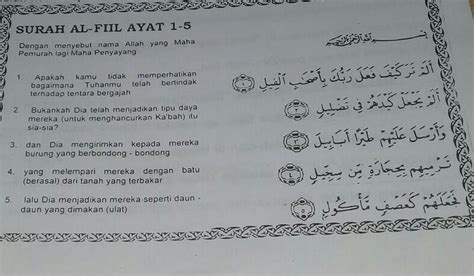 SURAH AL-FIIL AYAT 1-5
Dengan menyebut nama Allah yang Maha
Pemurah lagi Maha Penyayang
1 Apakah kamu tidak memperhatikan
bagaimana Tuhanmu telah bertindak
terhadap tentara bergajah
2. Bukankah Dia telah menjadikan tipu daya
mereka (untuk menghancurkan Ka'bah) itu
sia-sia?
3. dan Dia mengirimkan kepada mereka
burung yang berbondong - bondong
4. yang melempari mereka dengan batu
(berasal) dari tanah yang terbakar
5. lalu Dia menjadikan mereka seperti daun -
daun yang dimakan (ulat)
بِسْمِ اللَّهِ الرَّحْمَنِ الرَّحِيمِ
أَلَمْ تَرَ كَيْفَ فَعَلَ رَبُّكَ بِأَصْحَابِ الْفِيلِ ﴿١﴾
أَلَمْ يَجْعَلْ كَيْدَهُمْ فِي تَضْلِيلٍ ﴿٢﴾
وَأَرْسَلَ عَلَيْهِمْ طَيْرًا أَبَابِيلَ ﴿٣﴾
تَرْمِيهِمْ بِحِجَارَةٍ مِّن سِجِّيلٍ ﴿٤﴾
فَجَعَلَهُمْ كَعَصْفٍ مَّأْكُولٍ ﴿٥﴾